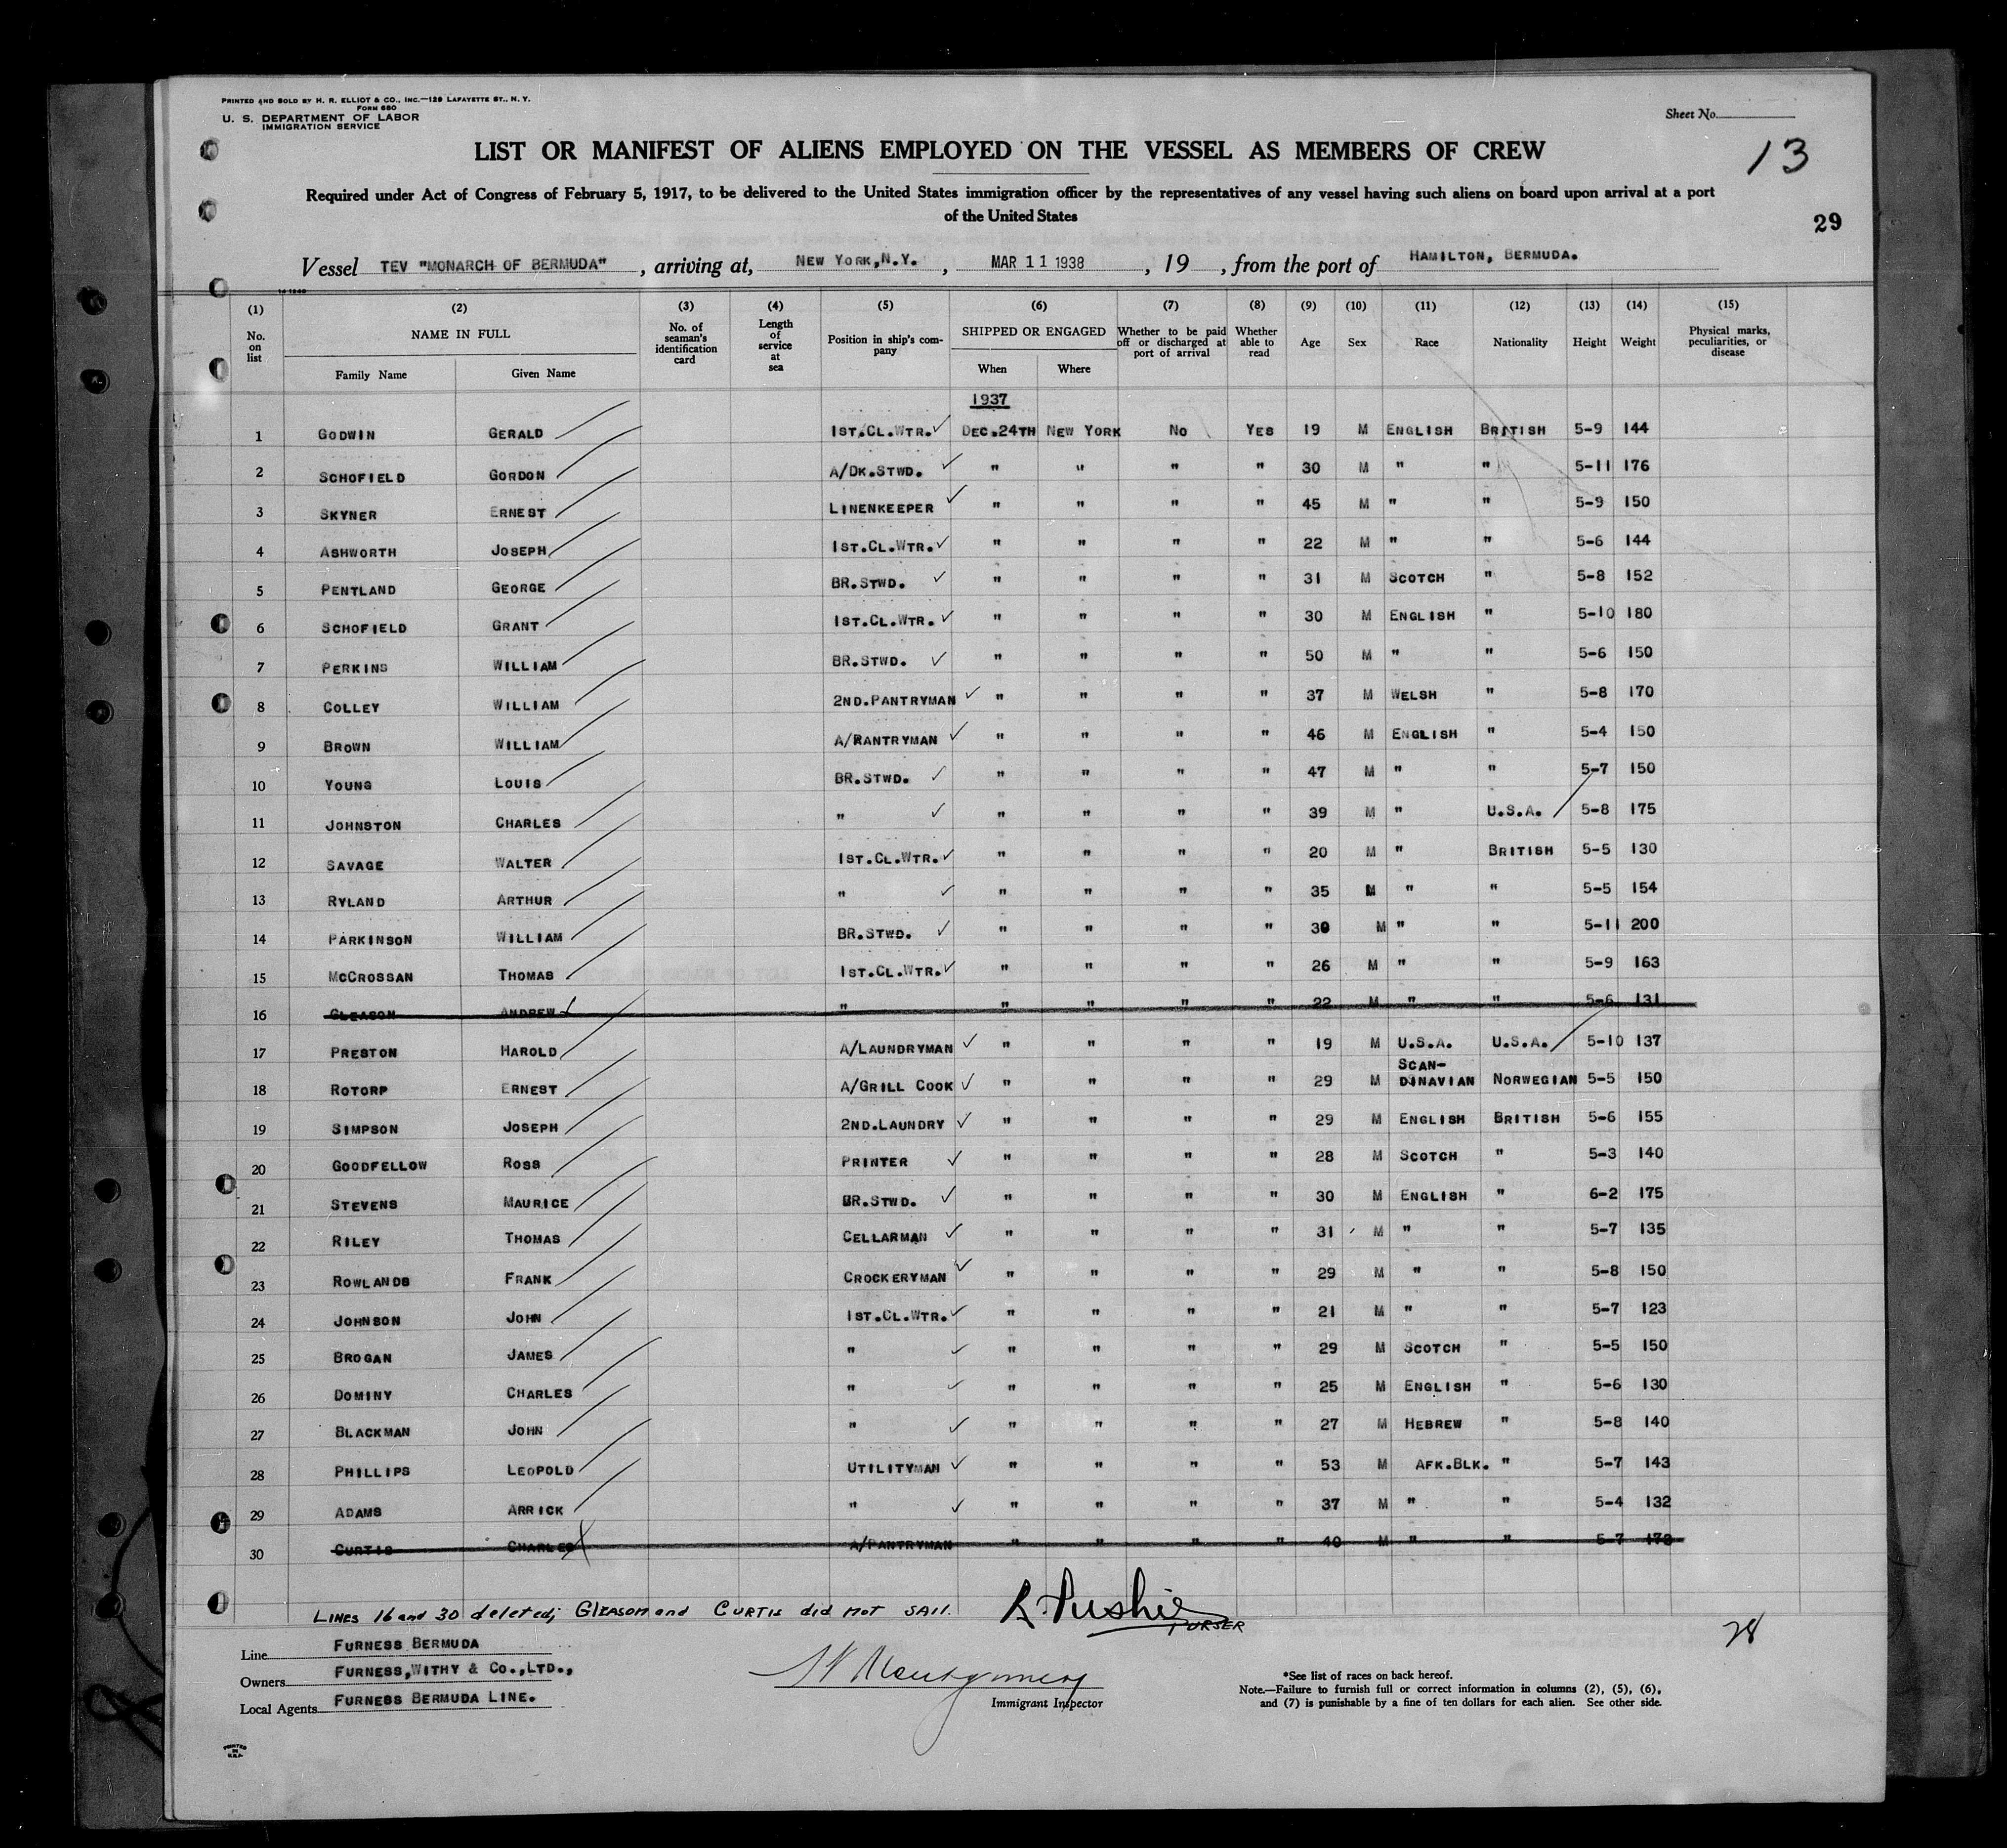 PRINTED AND SOLD BY H. R. ELLIOT & CO., INC.—129 LAFAYETTE ST., N. Y.
FORM 680
U. S. DEPARTMENT OF LABOR
IMMIGRATION SERVICE
Sheet No.
LIST OR MANIFEST OF ALIENS EMPLOYED ON THE VESSEL AS MEMBERS OF CREW
13
Required under Act of Congress of February 5, 1917, to be delivered to the United States immigration officer by the representatives of any vessel having such aliens on board upon arrival at a port
of the United States
29
Vessel TEV "MONARCH OF BERMUDA", arriving at, NEW YORK, N.Y., MAR 11 1938, 19 , from the port of HAMILTON, BERMUDA.
(1) (2) (3) (4) (5) (6) (7) (8) (9) (10) (11) (12) (13) (14) (15)
No. on list NAME IN FULL Family Name Given Name No. of seaman's identification card Length of service at sea Position in ship's company SHIPPED OR ENGAGED When Where Whether to be paid off or discharged at port of arrival Whether able to read Age Sex Race Nationality Height Weight Physical marks, peculiarities, or disease
1937
1 GODWIN GERALD 1ST.CL.WTR. DEC.24TH NEW YORK NO YES 19 M ENGLISH BRITISH 5-9 144
2 SCHOFIELD GORDON A/DK.STWD. " " " " 30 M " " 5-11 176
3 SKYNER ERNEST LINENKEEPER " " " " 45 M " " 5-9 150
4 ASHWORTH JOSEPH 1ST.CL.WTR. " " " " 22 M " " 5-6 144
5 PENTLAND GEORGE BR.STWD. " " " " 31 M SCOTCH " 5-8 152
6 SCHOFIELD GRANT 1ST.CL.WTR. " " " " 30 M ENGLISH " 5-10 180
7 PERKINS WILLIAM BR.STWD. " " " " 50 M " " 5-6 150
8 COLLEY WILLIAM 2ND.PANTRYMAN " " " " 37 M WELSH " 5-8 170
9 BROWN WILLIAM A/PANTRYMAN " " " " 46 M ENGLISH " 5-4 150
10 YOUNG LOUIS BR.STWD. " " " " 47 M " " 5-7 150
11 JOHNSTON CHARLES " " " " " 39 M " U.S.A. 5-8 175
12 SAVAGE WALTER 1ST.CL.WTR. " " " " 20 M " BRITISH 5-5 130
13 RYLAND ARTHUR " " " " " 35 M " " 5-5 154
14 PARKINSON WILLIAM BR.STWD. " " " " 30 M " " 5-11 200
15 MCCROSSAN THOMAS 1ST.CL.WTR. " " " " 26 M " " 5-9 163
16 GLEASON ANDREW " " " " " 22 M " " 5-6 131
17 PRESTON HAROLD A/LAUNDRYMAN " " " " 19 M U.S.A. U.S.A. 5-10 137
18 ROTORP ERNEST A/GRILL COOK " " " " 29 M SCAN-DINAVIAN NORWEGIAN 5-5 150
19 SIMPSON JOSEPH 2ND.LAUNDRY " " " " 29 M ENGLISH BRITISH 5-6 155
20 GOODFELLOW ROSS PRINTER " " " " 28 M SCOTCH " 5-3 140
21 STEVENS MAURICE BR.STWD. " " " " 30 M ENGLISH " 6-2 175
22 RILEY THOMAS CELLARMAN " " " " 31 M " " 5-7 135
23 ROWLANDS FRANK CROCKERYMAN " " " " 29 M " " 5-8 150
24 JOHNSON JOHN 1ST.CL.WTR. " " " " 21 M " " 5-7 123
25 BROGAN JAMES " " " " " 29 M SCOTCH " 5-5 150
26 DOMINY CHARLES " " " " " 25 M ENGLISH " 5-6 130
27 BLACKMAN JOHN " " " " " 27 M HEBREW " 5-8 140
28 PHILLIPS LEOPOLD UTILITYMAN " " " " 53 M AFK.BLK. " 5-7 143
29 ADAMS ARRICK " " " " " 37 M " " 5-4 132
30 CURTIS CHARLES A/PANTRYMAN " " " " 40 M " " 5-7
LINES 16 and 30 deleted; GLEASON and CURTIS did not SAIL. R. Pushie
PURSER
28
Line FURNESS BERMUDA
Owners FURNESS, WITHY & CO., LTD.,
Local Agents FURNESS BERMUDA LINE.
Montgomery
Immigrant Inspector
*See list of races on back hereof.
Note.—Failure to furnish full or correct information in columns (2), (5), (6), and (7) is punishable by a fine of ten dollars for each alien. See other side.
PRINTED IN U.S.A.